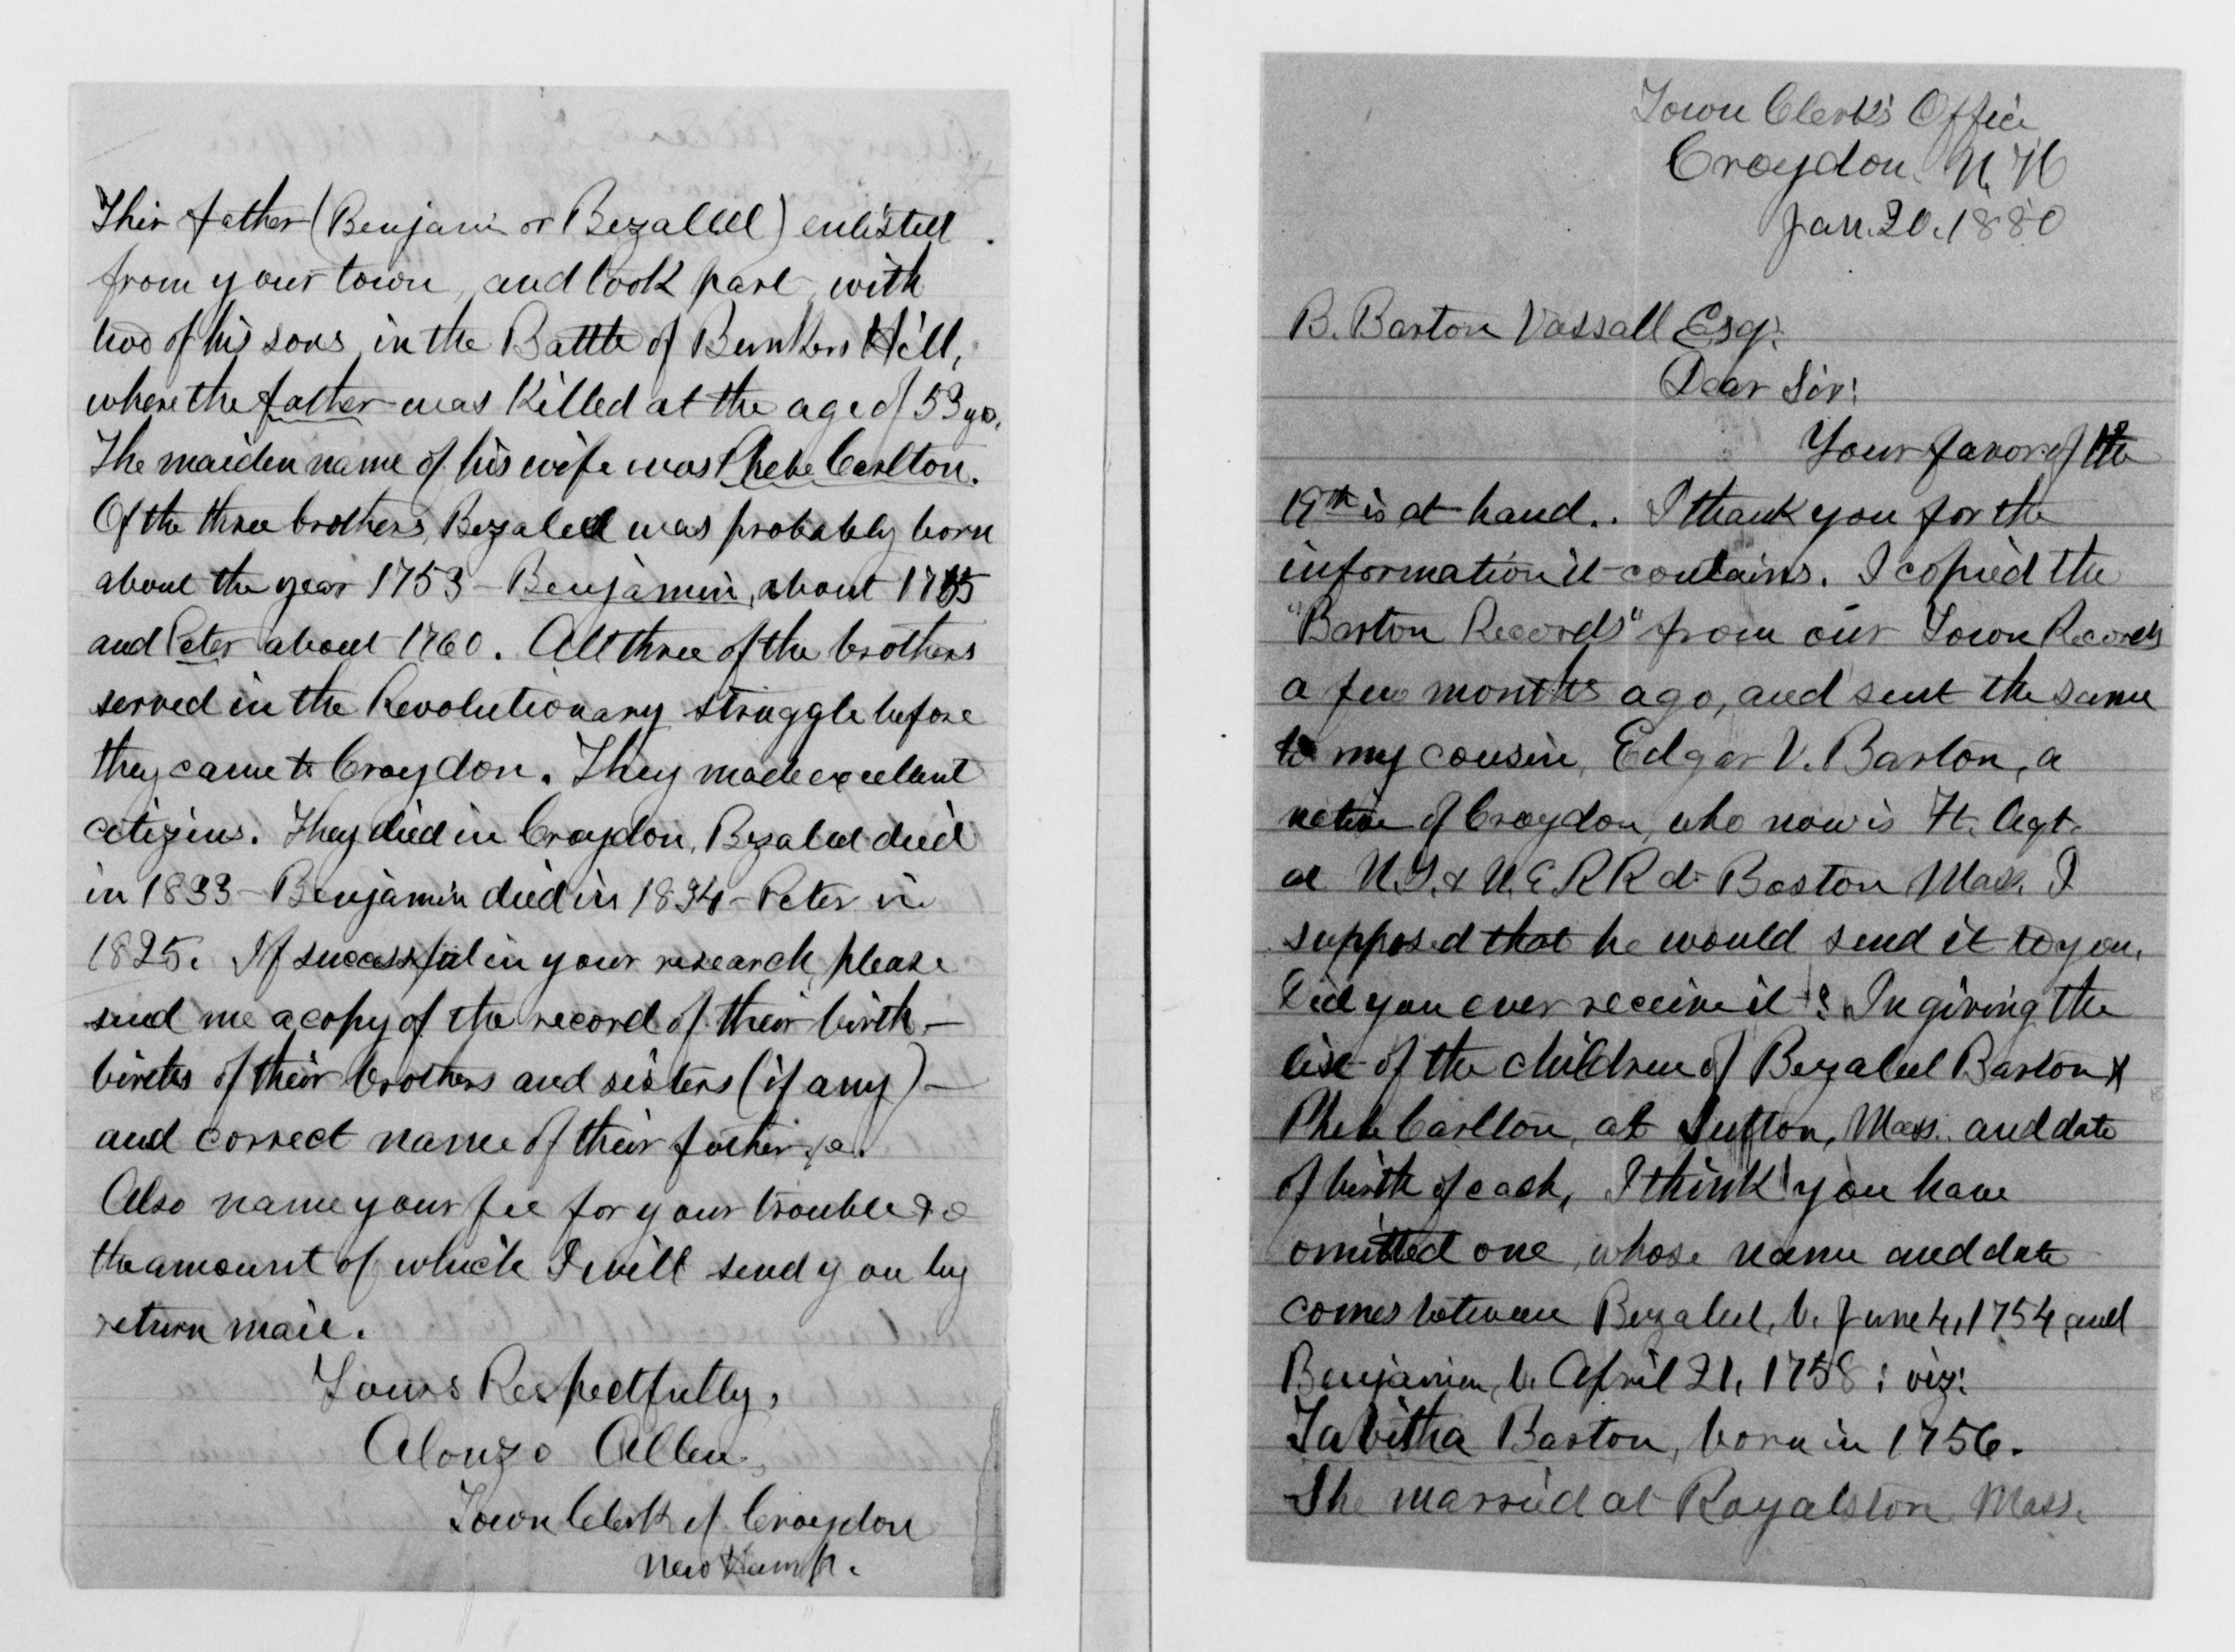 Thier father (Benjamin or Bezalleel) enlisted
from your town, and took part, with
two of his sons, in the Battle of Bunkers Hill,
where the father was killed at the age of 53 yrs.
The maiden name of his wife was Phebe Carlton.
Of the three brothers, Bezaleel was probably born
about the year 1753 – Benjamin, about 1755
and Peter about 1760. All three of the brothers
served in the Revolutionary struggle before
they came to Croydon. They made excelent
citizins. They died in Croydon, Bezaleel died
in 1833 – Benjamin died in 1834 – Peter in
1825. If successful in your research, please
send me a copy of the record of their birth –
births of their brothers and sisters (if any) –
and correct name of their father &c.
Also name your fee for your trouble &c
the amount of which I will send you by
return mail.
Yours Respectfully,
Alonzo Allen,
Town Clerk of Croydon
New Hamp.
Town Clerk's Office
Croydon, N.H
Jan. 20. 1880
B. Barton Vassall Esq.
Dear Sir:
Your favor of the
19th is at hand.. I thank you for the
information it contains. I copied the
"Barton Records" from our Town Records
a few months ago, and sent the same
to my cousin, Edgar V. Barton, a
native of Croydon, who now is Ft. Agt.
at N.Y. & N.E RR at Boston Mass. I
supposed that he would send it to you.
Did you ever receive it? In giving the
list of the children of Bezaleel Barton &
Phebe Carlton, at Sutton, Mass. and date
of birth of each, I think you have
omitted one, whose name and date
comes between Bezaleel, b. June 4, 1754, and
Benjamin, b. April 21, 1758: viz:
Tabitha Barton, born in 1756.
She married at Royalston Mass.